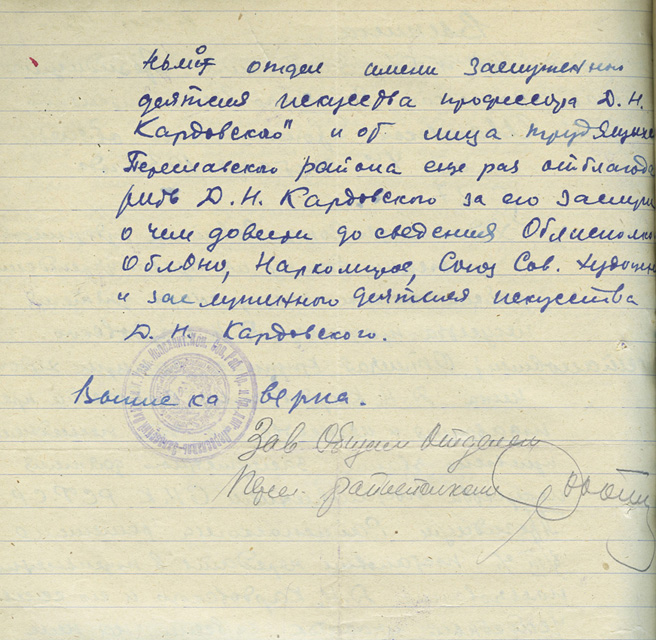 отдел имени заслуженно
деятеля искусства профессора Д. Н.
Кардовского" и от лица трудящихся
Переславского района еще раз отблагода
рить Д. Н. Кардовского за его заслуги
о чем довести до сведения Облисполко
ОблОНО, Союз Сов. художн
и заслуженного деятеля искусства
Д. Н. Кардовского.
Выписка верна.
Зав Общим Отделом
Перес. райисполкома